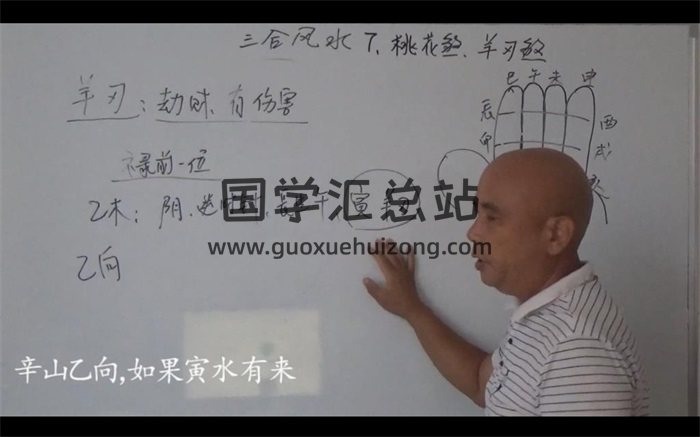 三合风水 7、桃花煞、羊刃煞
巳午未申
辰
酉
卯
戌
羊刃：劫财、有伤害
禄前一位
乙木：阴、逆
寅
国学汇总站
www.guoxuehuizong.com
乙向
辛山乙向,如果寅水有来